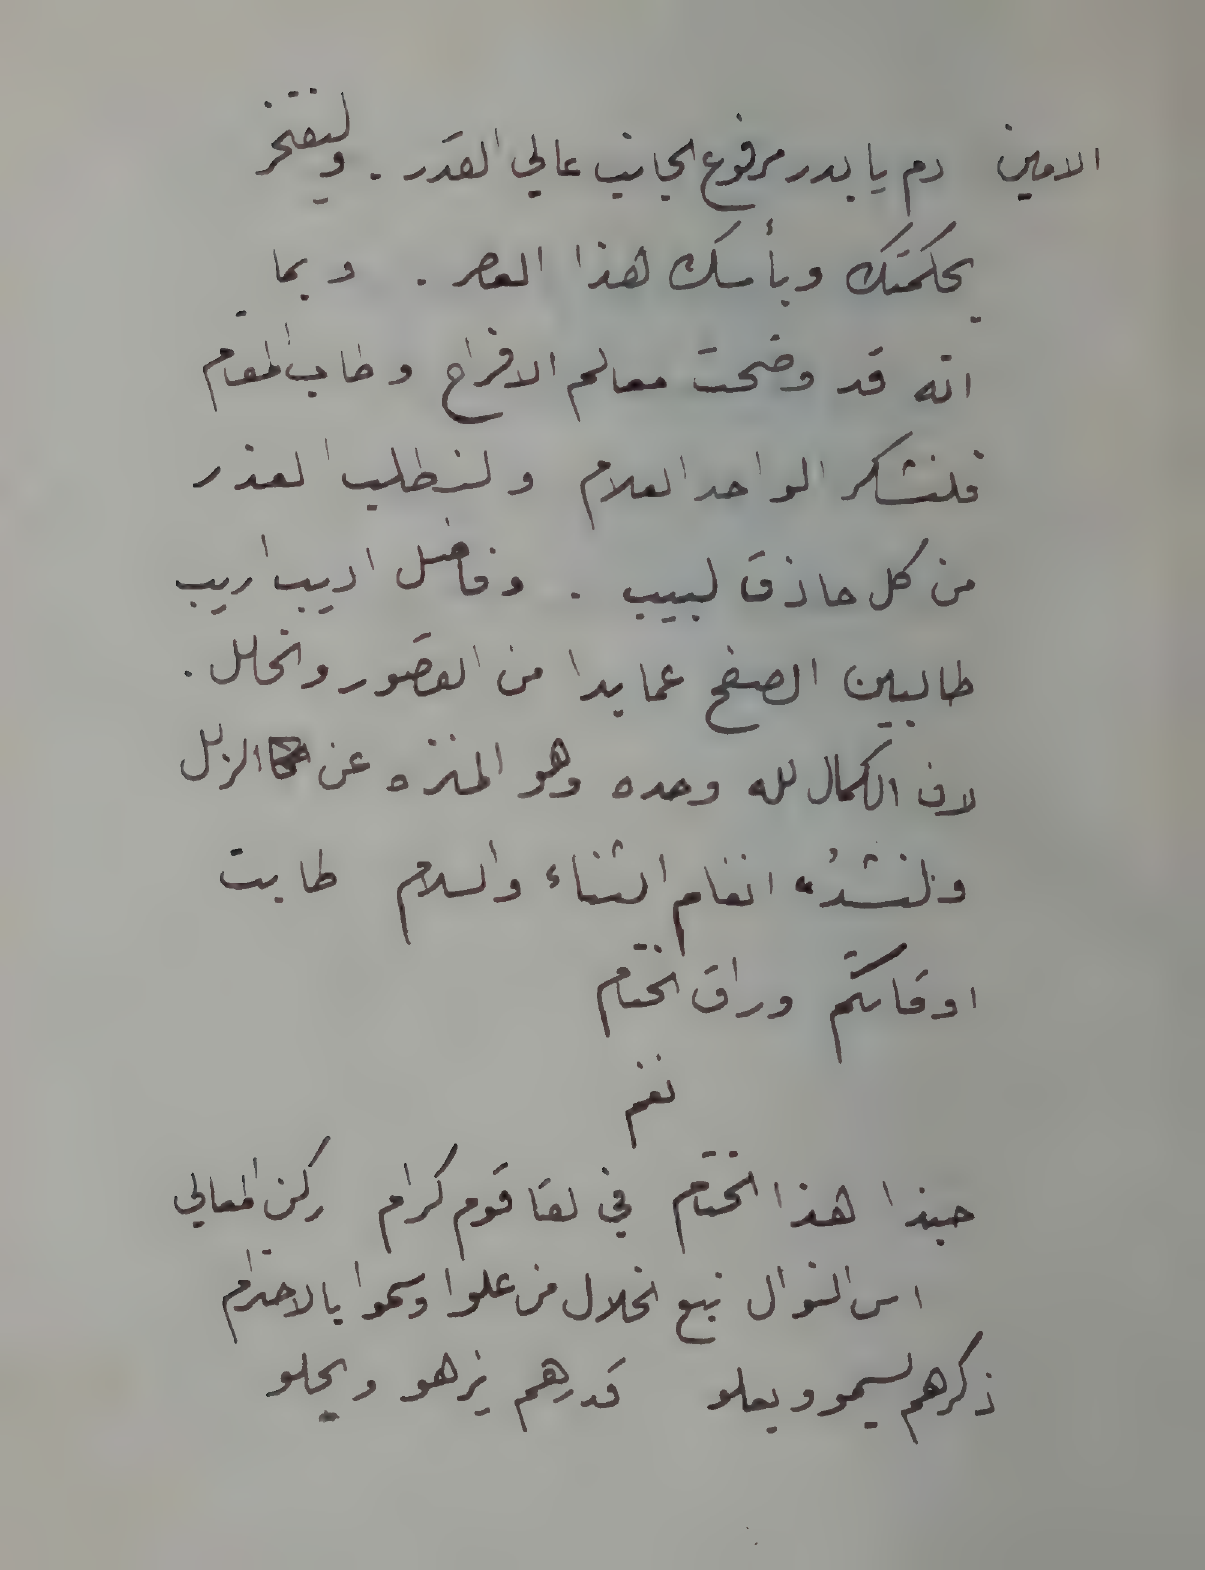 الامين دم يا بدر مرفوع الجانب عالي القدر . وليفتخر
بحكمتك وبأسك هذا العصر . وبما
انه قد وضحت معالم الافراح وطاب المقام
فلنشكر الواحد العلام ولنطلب العذر
من كل حاذق لبيب . وفاضل اديب اريب
طالبين الصفح عما بدا من القصور والخلل .
لان الكمال لله وحده وهو المنزه عن الزلل
ولنشد انغام الثناء والسلام طابت
اوقاتكم وراق الختام
نغم
حبذا هذا الختام في لقا قوم كرام ركن المعالي
اس النوال نبع الخلال من علوا وسموا بالاحترام
ذكرهم يسمو ويعلو قدرهم يزهو ويحلو